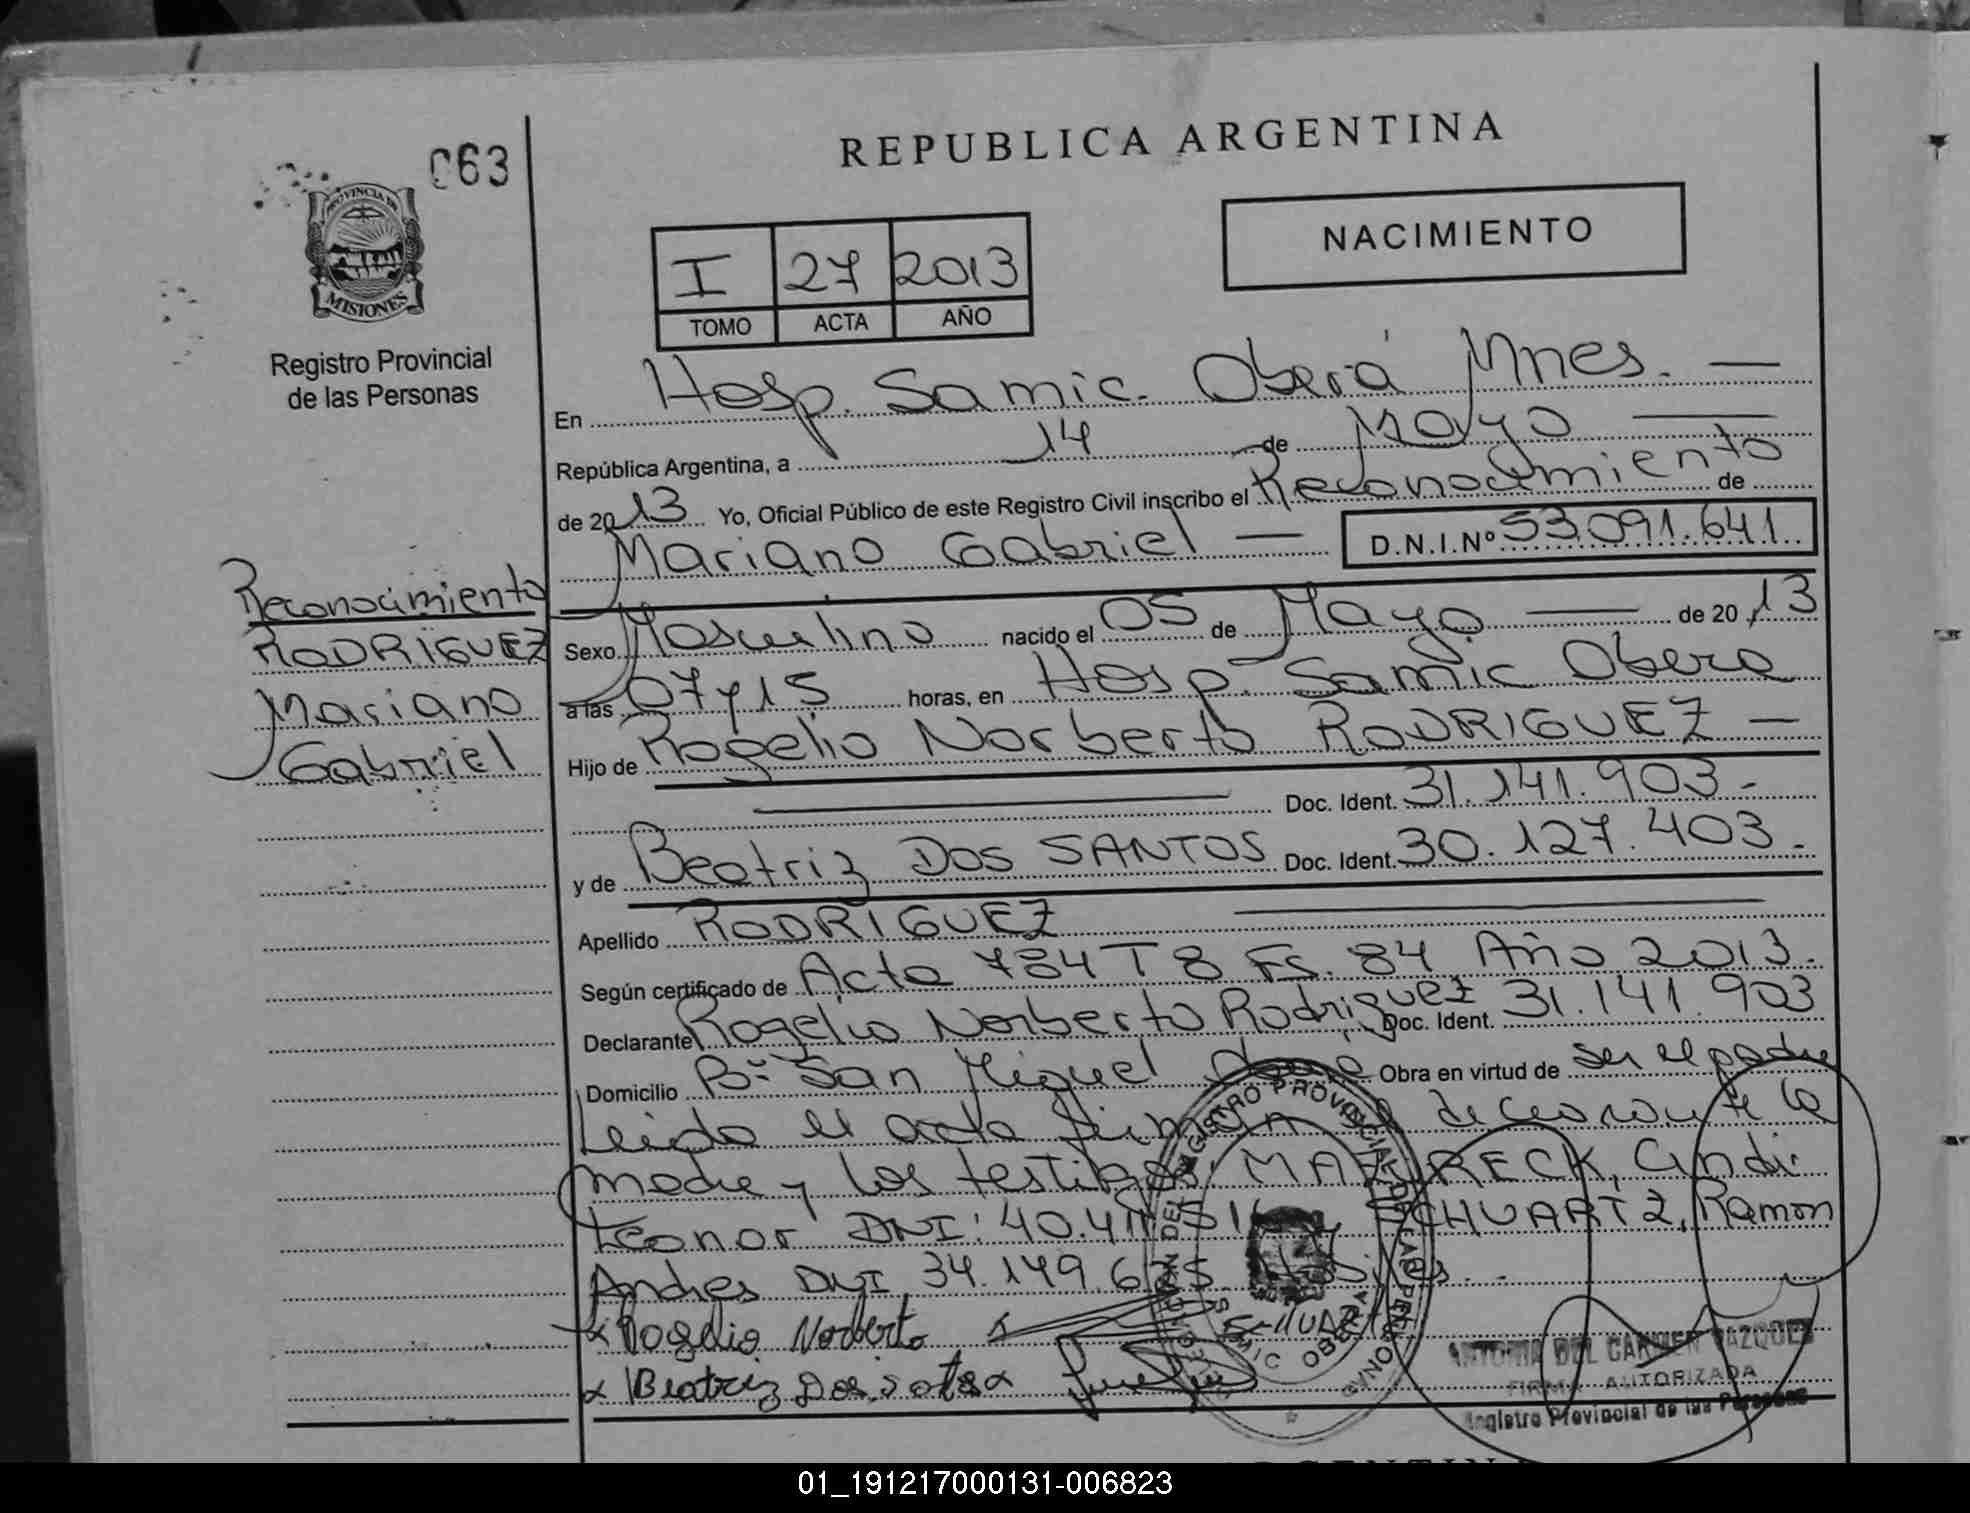 063
REPUBLICA ARGENTINA
PROVINCIA DE
MISIONES
Registro Provincial
de las Personas
I 27 2013
TOMO ACTA AÑO
NACIMIENTO
En Hosp. Samic. Oberá Mnes. —
República Argentina, a 14 de Mayo —
de 2013 Yo, Oficial Público de este Registro Civil inscribo el Reconocimiento de
Mariano Gabriel — D.N.I.Nº 53.091.641
Reconocimiento
RODRIGUEZ
Mariano
Gabriel
Sexo Masculino nacido el 05 de Mayo — de 2013
a las 07 y 15 horas, en Hosp. Samic Obera
Hijo de Rogelio Norberto RODRIGUEZ —
— Doc. Ident. 31.141.903.-
y de Beatriz DOS SANTOS Doc. Ident. 30.127.403.-
Apellido RODRIGUEZ —
Según certificado de Acta 784 T 8 Fs. 84 Año 2013.-
Declarante Rogelio Norberto Rodriguez Doc. Ident. 31.141.903
Domicilio Bº San Miguel Obera Obra en virtud de ser el padre
Leida el acta firman el declarante la
madre y los testigos: RECK, Cindi
Leonor DNI: 40.41 SCHUARTZ, Ramon
Andres DNI 34.149.6
x Rogelio Norberto x
x Beatriz Dos Santos x
SCHUART
ANTONIA DEL CARMEN VAZQUEZ
FIRMA AUTORIZADA
Registro Provincial de las Personas
01_191217000131-006823